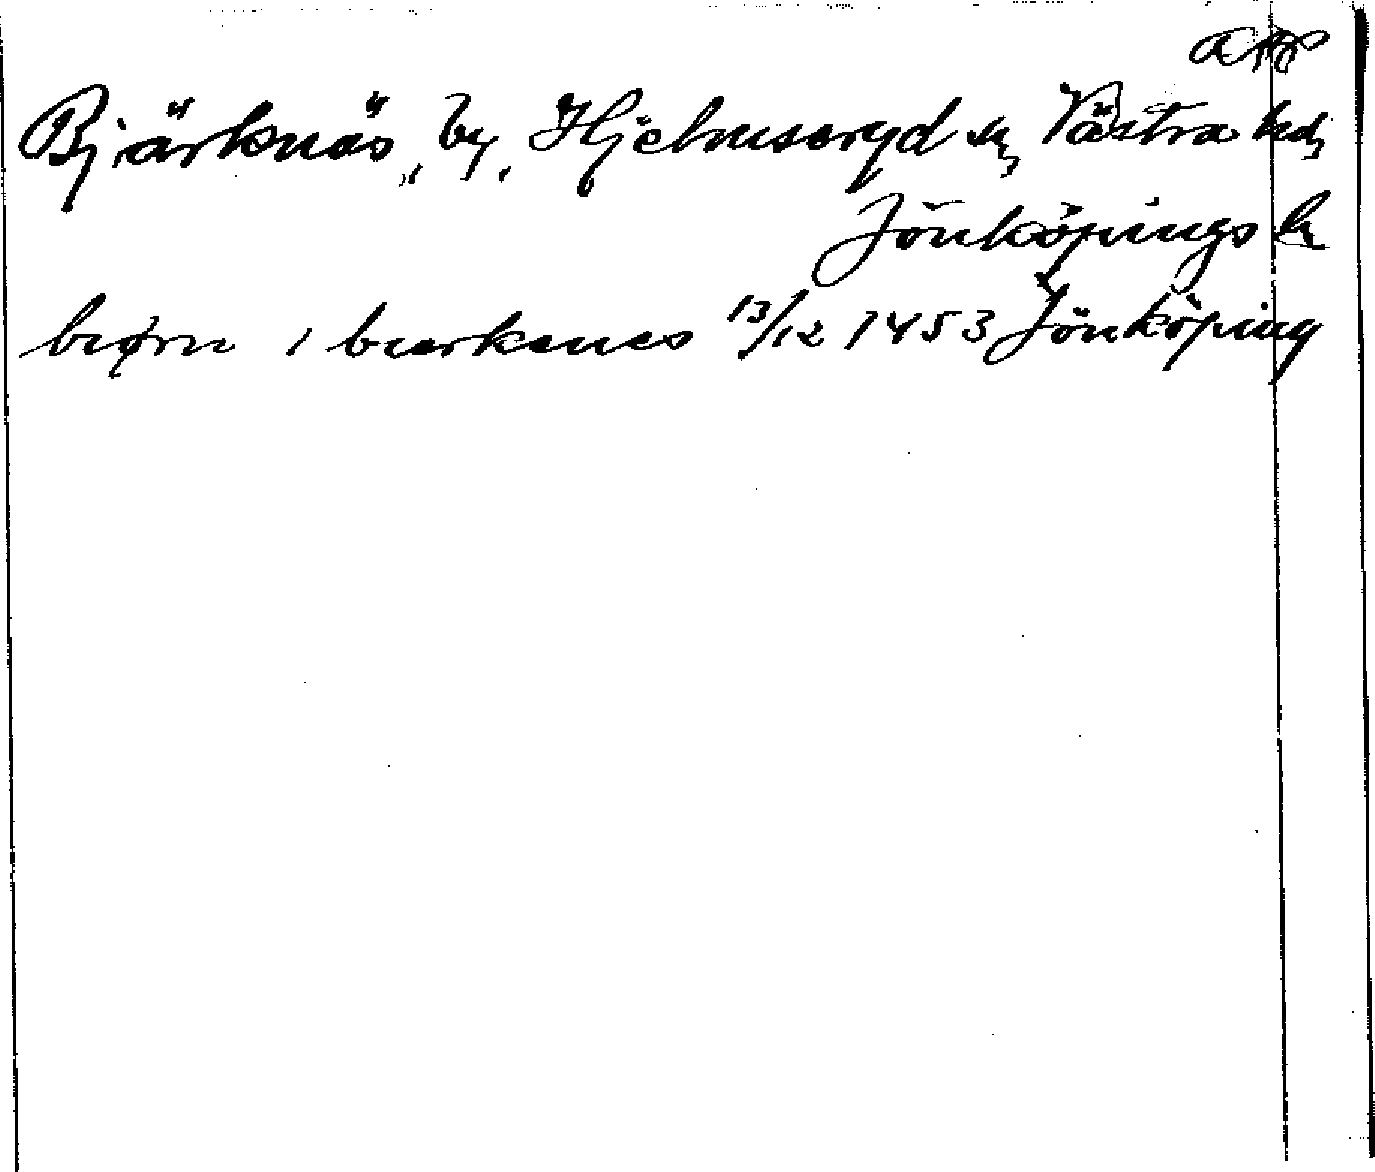 Bjärknäs, by, Hjelmseryd sn, Västra hd,
Jönköpings l.
biørn i biærkenes 13/12 1453 Jönköping